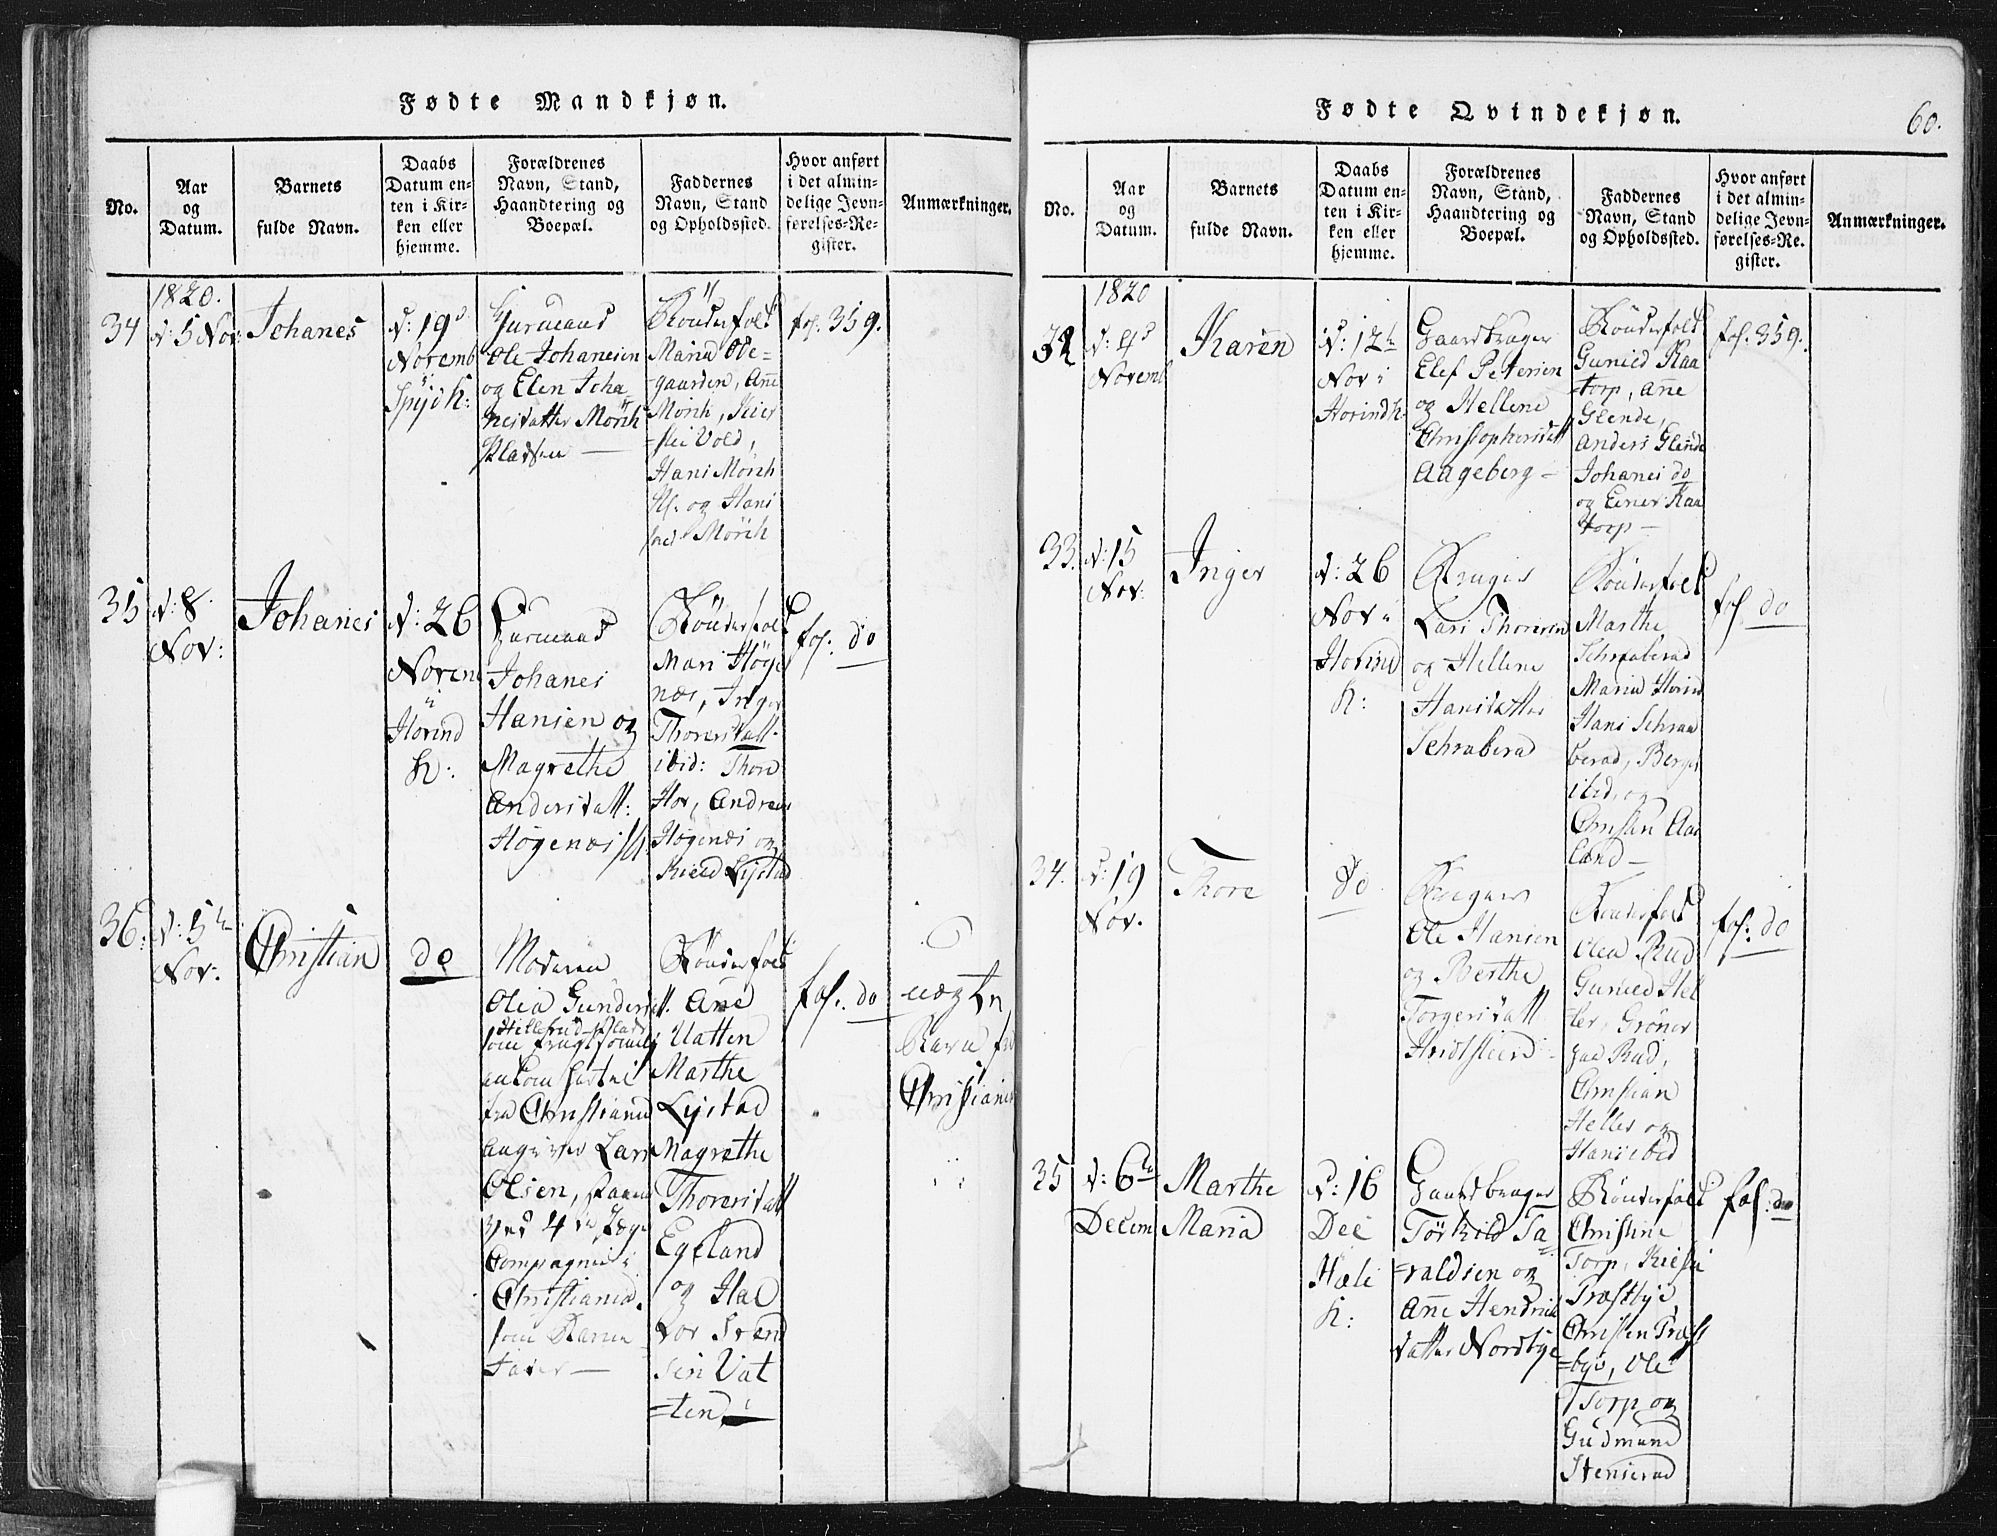 Fødte Mandkjøn.
No.
Aar
og
Datum.
Barnets
fulde Navn.
Daabs
Datum en-
ten i Kir-
ken eller
hjemme.
Forældrenes
Navn, Stand,
Haandtering og
Boepæl.
Faddernes
Navn, Stand
og Opholdssted.
Hvor anført
i det almin-
delige Jevn-
førelses-Re-
gister.
Anmærkninger.
1820.
34
d: 5 Nov:
Johanes
d: 19d
Novemb
i
Spydk:
Huusmand
Ole Johanesen
og Elen Joha
nesdatter Mörch
Pladsen —
Bönderfolk
Maria Ode-
gaarden, Añe
Mörch,
Vold,
Hans Mörch
Pl. og Hans
Mörch
fol. 359.
35
d: 8.
Nov:
Johanes
d: 26
Novem
i
Hovind
k:
Huusmand
Johanes
Hansen og
Magrethe
Andersdatt:
Høgenæs
Bönderfolk
Mari Høge
næs, Inger
Thoresdatt.
ibid: Thore
Hov, Andreas
Høgenæs og
Kield Lystad
fol. do
36.
d: 5te
Nov:
Christian
do
Moderen
Olea Gundersdtt.
Hillestad-Plads
som
fra Christiania
angiver Lars
Olsen,
ved 4de Jæger
Compagnie i
Christiania,
som Barne-
fader —
Bönderfolk
Ane
Vatten
Marthe
Lystad
Magrethe
Thoresdatt
Egeland
og Hal
vor Svend
sen Vat
=ten
fol. do
uægte
Barn fra
Christiania
Fødte Qvindekjøn.
60.
No.
Aar
og
Datum.
Barnets
fulde Navn.
Daabs
Datum en-
ten i Kir-
ken eller
hjemme.
Forældrenes
Navn, Stand,
Haandtering og
Boepæl.
Faddernes
Navn, Stand
og Opholdssted.
Hvor anført
i det almin-
delige Jevn-
førelses-Re-
gister.
Anmærkninger.
1820
32
d: 4d
Novemb
Karen
d: 12te
Nov i
Hovindk
Gaardbruger
Elef Petersen
og Hellene
Christophersdatt
Aageberg —
Bönderfolk
Gunild Kaa
=torp, Añe
Glende,
Anders Glende
Johanes do
og Einer Kaa
torp —
fol. 359.
33.
d: 15
Nov:
Inger
d: 26
Nov i
Hovind
k:
Bruger
Lars Thoresen
og Hellene
Hansdatter
Schraberad
Bönderfolk
Marthe
Schraberad
Maria Hovind
Hans Schraa
berad, Berger
ibid, og
Christian Aas
land —
fol. do
34.
d: 19
Nov.
Thore
do
Bruger
Ole Hansen
og Berthe
Torgersdatt
Bönderfolk
Olea Rud
Gunild Hel
ler, Gröner
Rud,
Christian
Heller og
Hans ibid
fol. do
35
d: 6te
Decem
Marthe
Maria
d: 16
Dec
Hæli
k:
Gaardbruger
Törkild Ta
=raldsen og
Añe Hendrik
datter Nordbye
Bönderfolk
Christine
Torp,
Præstbye
Christen Præst
=bye, Ole
Torp og
Gudmund
Stenserad
fol. do